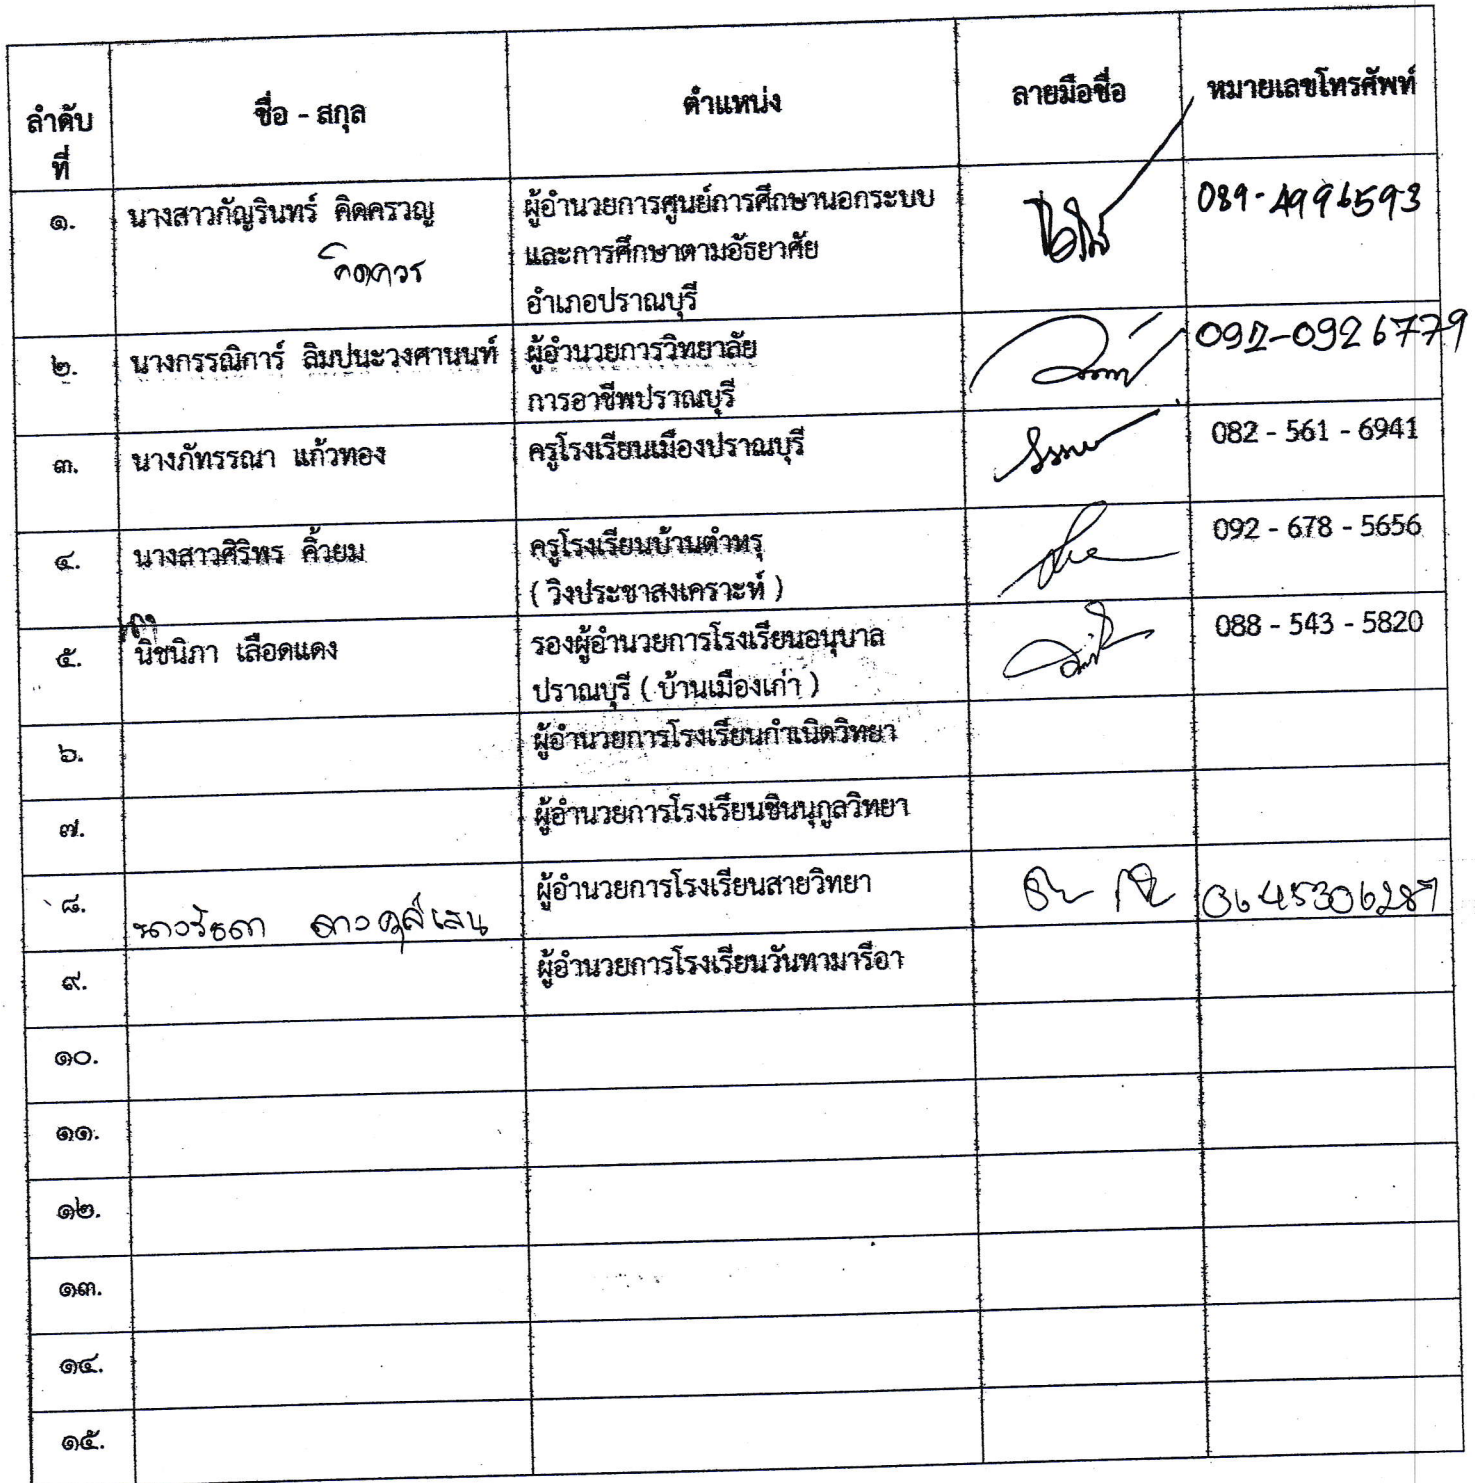 ลำดับ
ที่
ชื่อ - สกุล
ตำแหน่ง
ลายมือชื่อ
หมายเลขโทรศัพท์
๑.
นางสาวกัญรินทร์ คิดครวญ
คิดควร
ผู้อำนวยการศูนย์การศึกษานอกระบบ
และการศึกษาตามอัธยาศัย
อำเภอปราณบุรี
089-4996593
๒.
นางกรรณิการ์ ลิมปนะวงศานนท์
ผู้อำนวยการวิทยาลัย
การอาชีพปราณบุรี
092-0926779
๓.
นางภัทรรณา แก้วทอง
ครูโรงเรียนเมืองปราณบุรี
082 - 561 - 6941
๔.
นางสาวศิริพร คิ้วยม
ครูโรงเรียนบ้านตำหรุ
( วิงประชาสงเคราะห์ )
092 - 678 - 5656
๕.
นิชนิภา เลือดแดง
รองผู้อำนวยการโรงเรียนอนุบาล
ปราณบุรี ( บ้านเมืองเก่า )
088 - 543 - 5820
๖.
ผู้อำนวยการโรงเรียนกำเนิดวิทยา
๗.
ผู้อำนวยการโรงเรียนชินนุกูลวิทยา
๘.
ผู้อำนวยการโรงเรียนสายวิทยา
0645306287
๙.
ผู้อำนวยการโรงเรียนวันทามารีอา
๑๐.
๑๑.
๑๒.
๑๓.
๑๔.
๑๕.